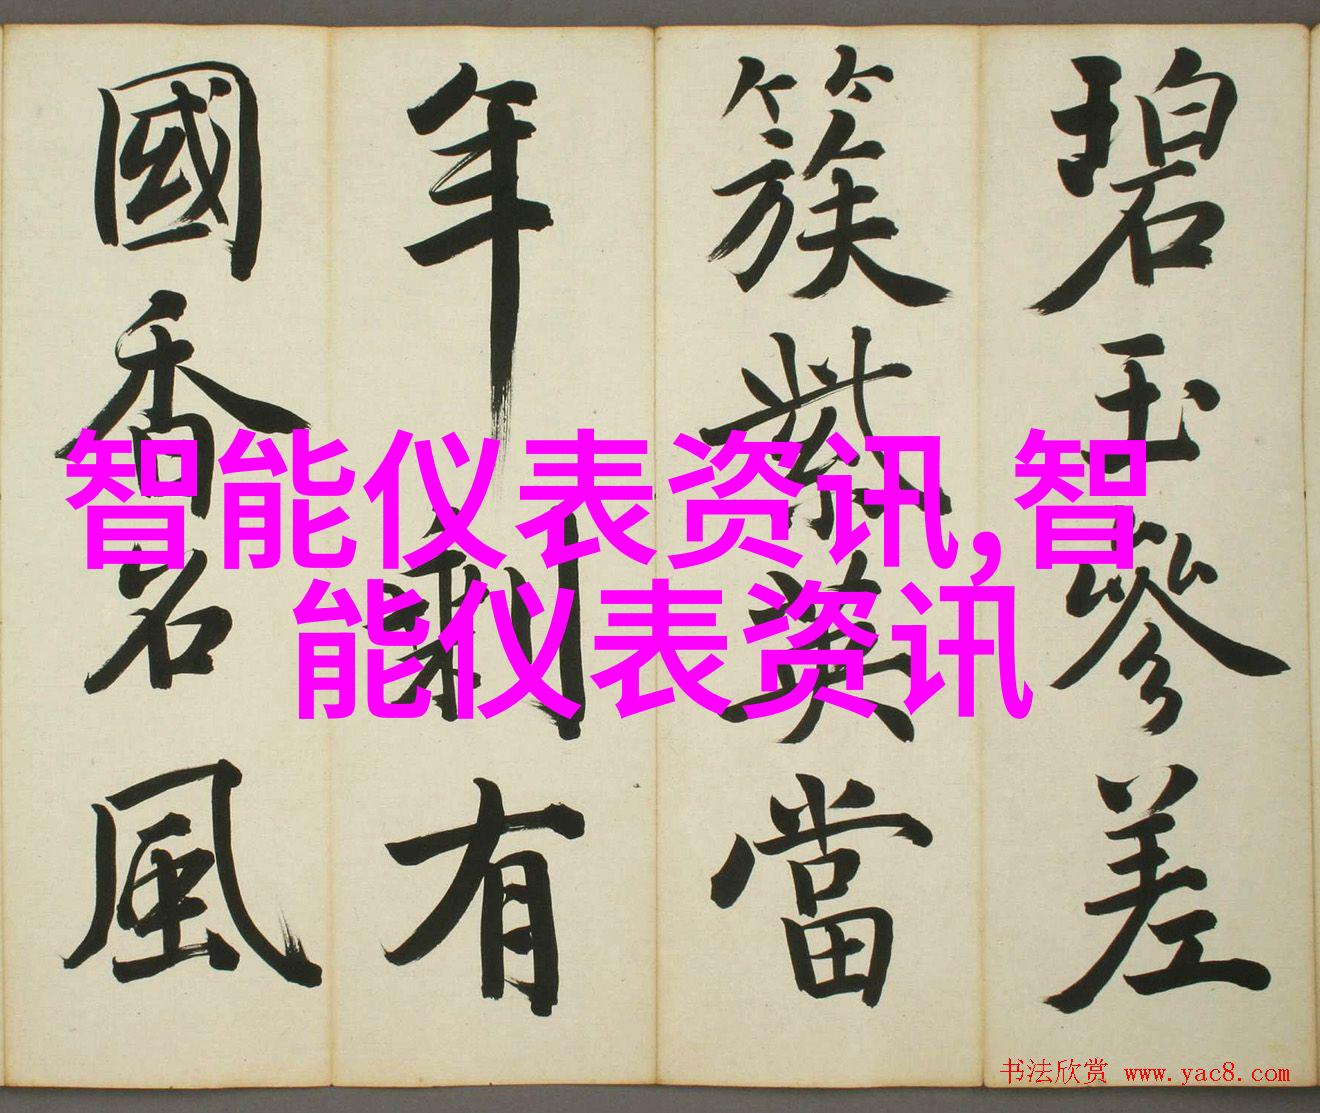 碧玉參差
簇紫英當
年剩有
國香名風
智能仪表资讯,智
能仪表资讯
书法欣赏 www.yac8.com